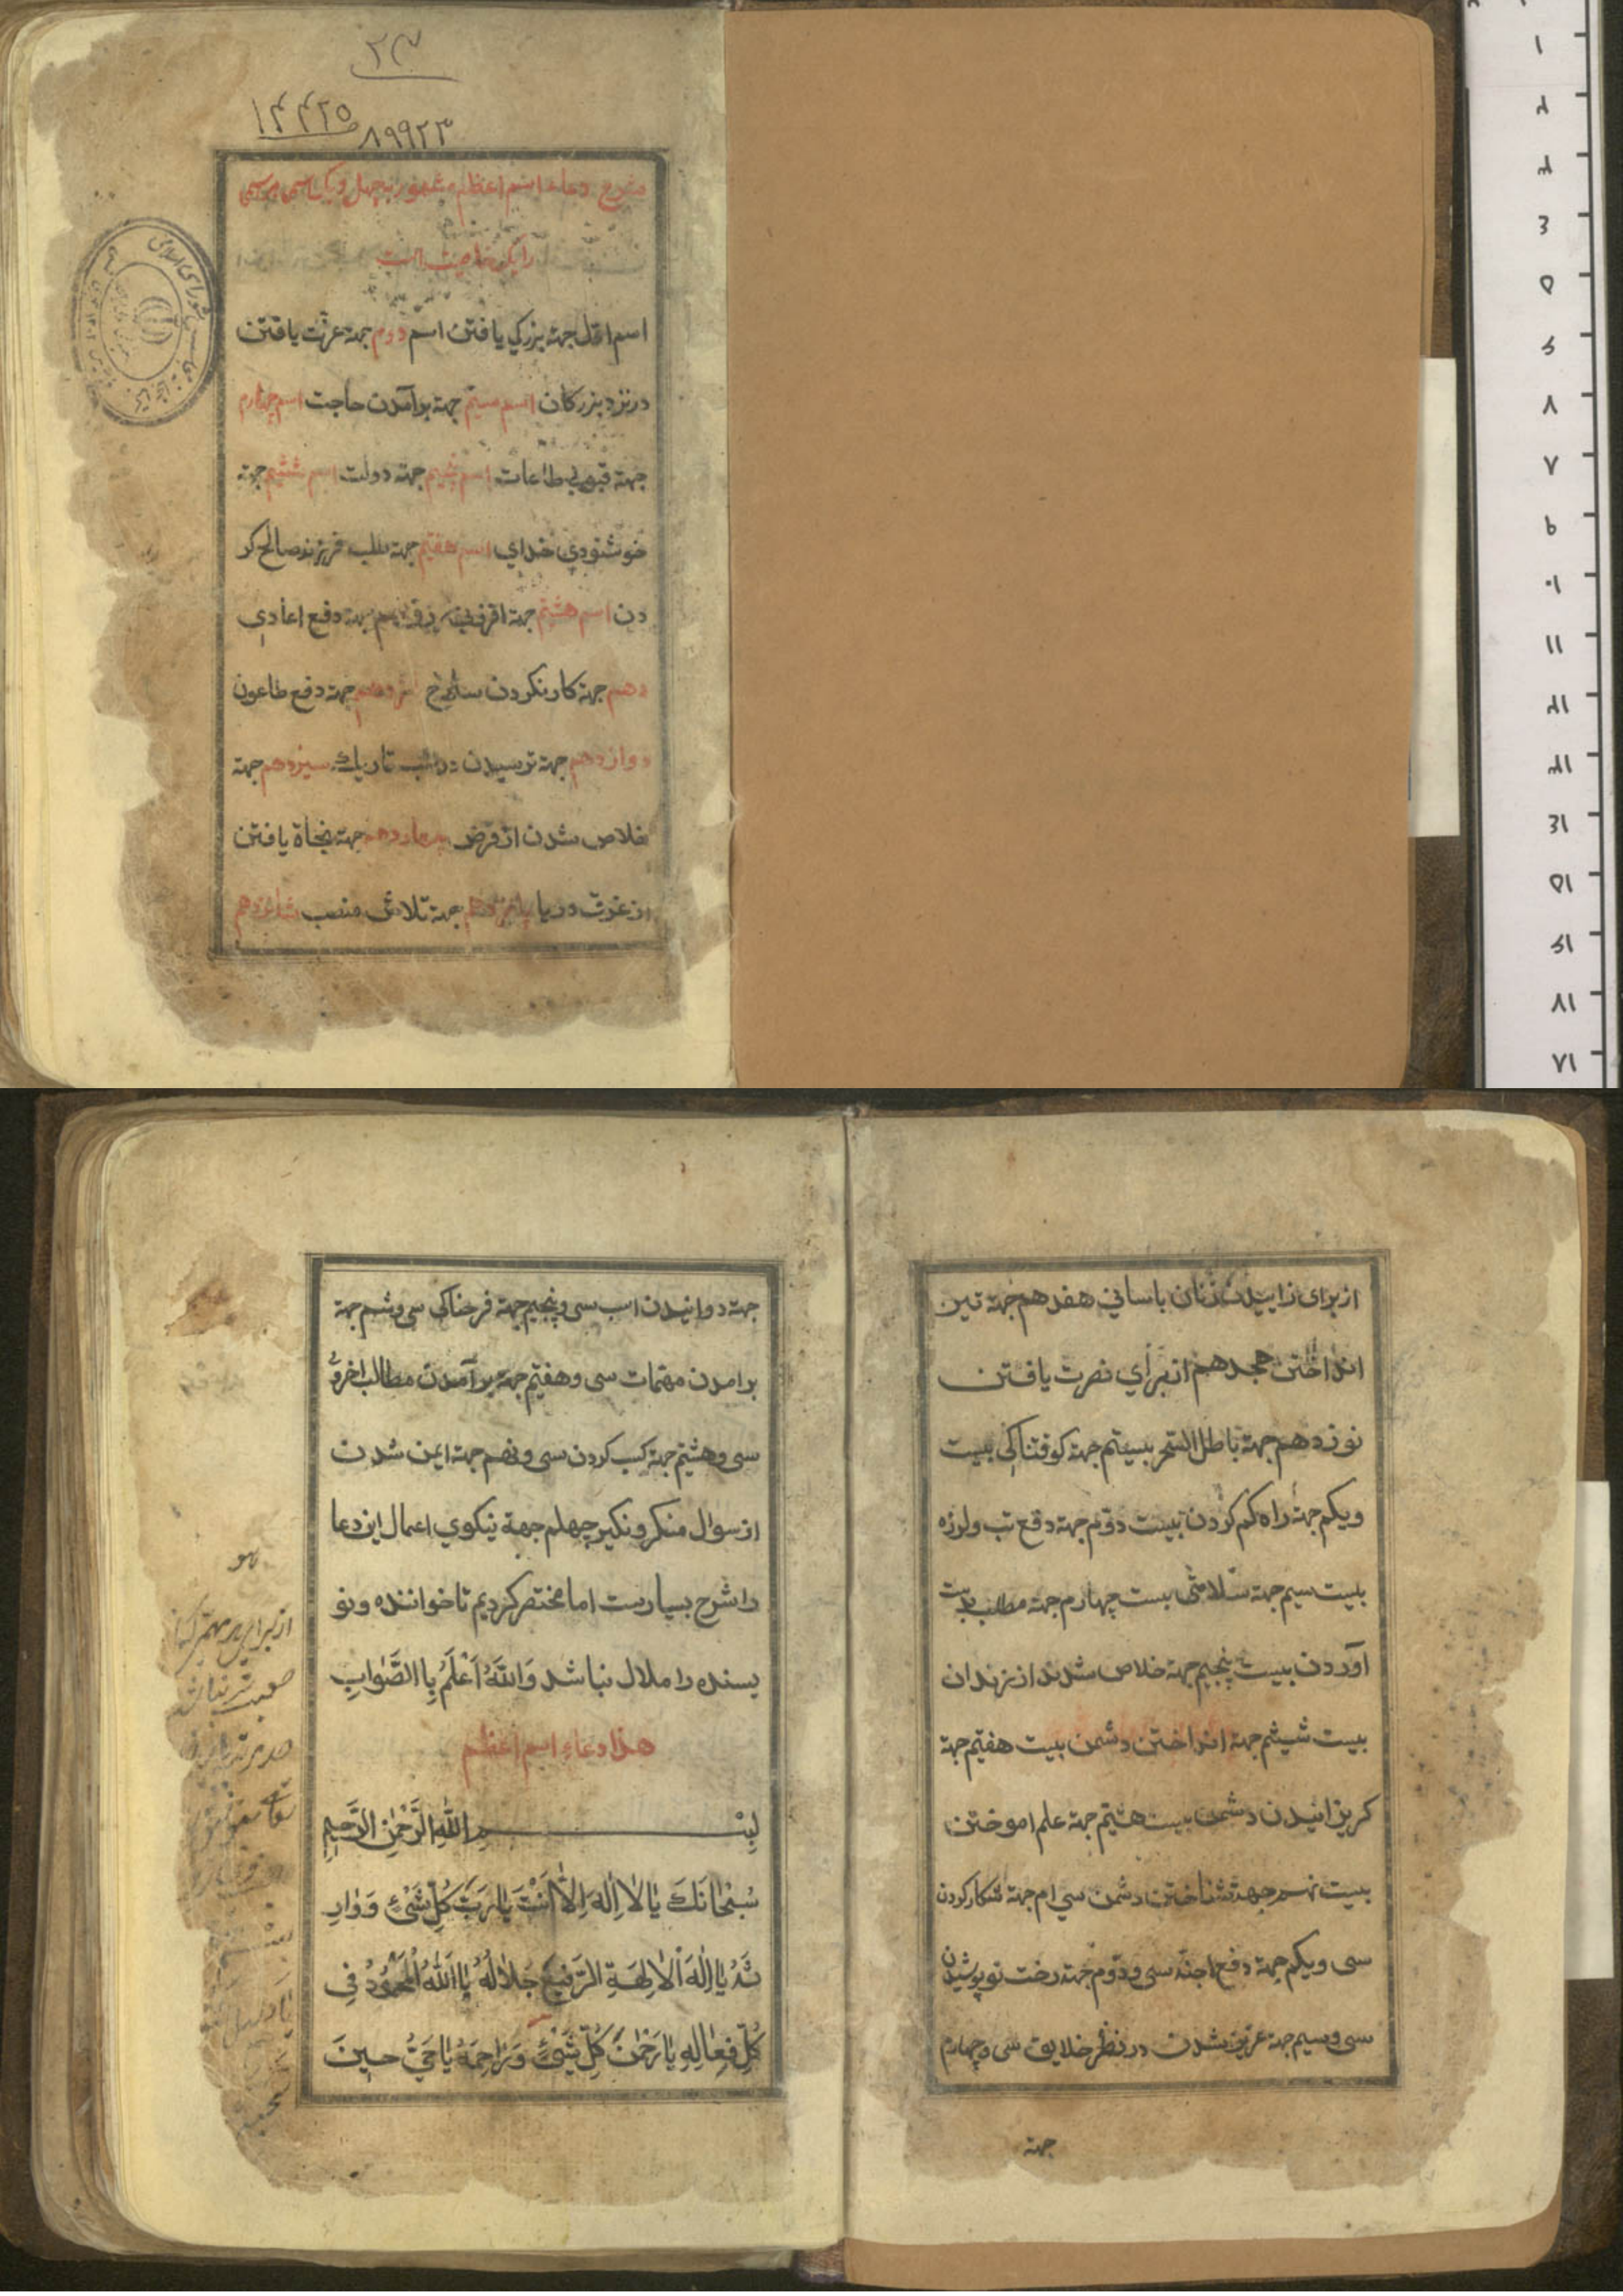 ۲۳
۱۴۴۲۵
۸۹۹۲۳
شرح دعاء اسم اعظم مشهور بچهل و یک اسمی هر اسمی
را یک خاصیت است
اسم اوّل جهة بزرکی یافتن اسم دوم جهة عزّت یافتن
در نزد بزرکان اسم سیّم جهة برآمدن حاجت اسم چهارم
جهة قبولی طاعات اسم پنجیم جهة دولت اسم ششیم جهة
خوشنودی خدای اسم هفتیم جهة طلب فرزند صالح کر
دن اسم هشتیم جهة دفع اعادی
دهم جهة کار نکردن سلاح جهة دفع طاعون
دوازدهم جهة ترسیدن در شب تاریک سیزدهم جهة
خلاص شدن از قرض چهاردهم جهة نجاة یافتن
از غرق دریا پانزدهم جهة تلاش منصب شانزدهم
از برای زاییدن زنان باسانی هفدهم جهة تیر
انداختن هجدهم از برای نصرت یافتن
نوزدهم جهة باطل السحر بیستم جهة کوفتناکی بیست
ویکم جهة راه کم کردن بیست دوّم جهة دفع تب ولرزه
بیست سیم جهة سلامتی بیست چهارم جهة مطلب بدست
آوردن بیست پنجیم جهة خلاص شدند از زندان
بیست شیشم جهة انداختن دشمن بیست هفتیم جهة
کریزانیدن دشمن بیست هشتیم جهة علم اموختن
بیست نهم جهة شناختن دشمن سی ام جهة شکار کردن
سی ویکم جهة دفع اجنّه سی ودوّم جهة رخت نو پوشیدن
سی وسیم جهة عزیز شدن در نظر خلایق سی وچهارم
جهة
جهة دوانیدن اسب سی وپنجیم جهة فرحناکی سی وشم جهة
برامدن مهمّات سی وهفتیم جهة برآمدن مطالب اخروی
سی وهشتیم جهة کسب کردن سی ونهم جهة ایمن شدن
از سوال منکر ونکیر چهلم جهة نیکوی اعمال این دعا
را شرح بسیارست اما مختصر کردیم تا خواننده ونو
یسنده را ملال نباشد وَاللّهُ اَعْلَمُ بِاالصَّوابِ
هذا دعاء اسم اعظم
بِسْمِ اللّهِ الرَّحْمٰنِ الرَّحیمِ
سُبْحانَكَ یا لا اِلهَ اِلاّ اَنْتَ یا رَبَّ كُلِّ شَیْءٍ وَوارِ
ثَهُ یا اِلهَ الْالِهَةِ الرَّفیعُ جَلالُهُ یا اَللّهُ الْمَحْمُودُ فی
كُلِّ فِعالِهِ یا رَحْمنَ كُلِّ شَیْءٍ وَراحِمَهُ یا حَیُّ حینَ
هو